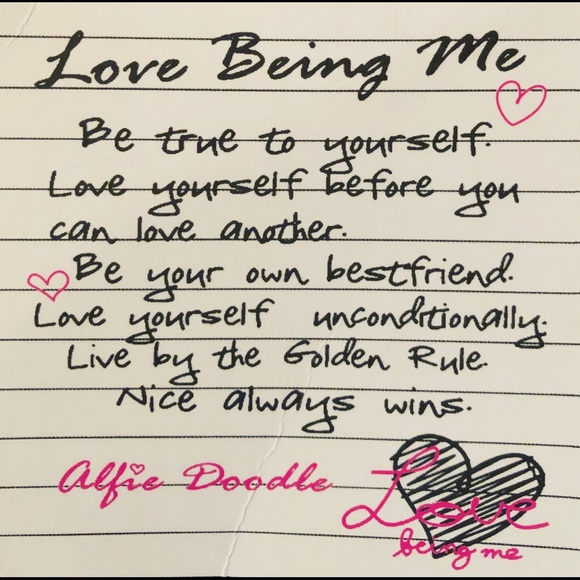 Love Being Me
Be true to yourself.
Love yourself before you
can love another.
Be your own bestfriend.
Love yourself unconditionally.
Live by the Golden Rule.
Nice always wins.
Alfie Doodle
Love
being me